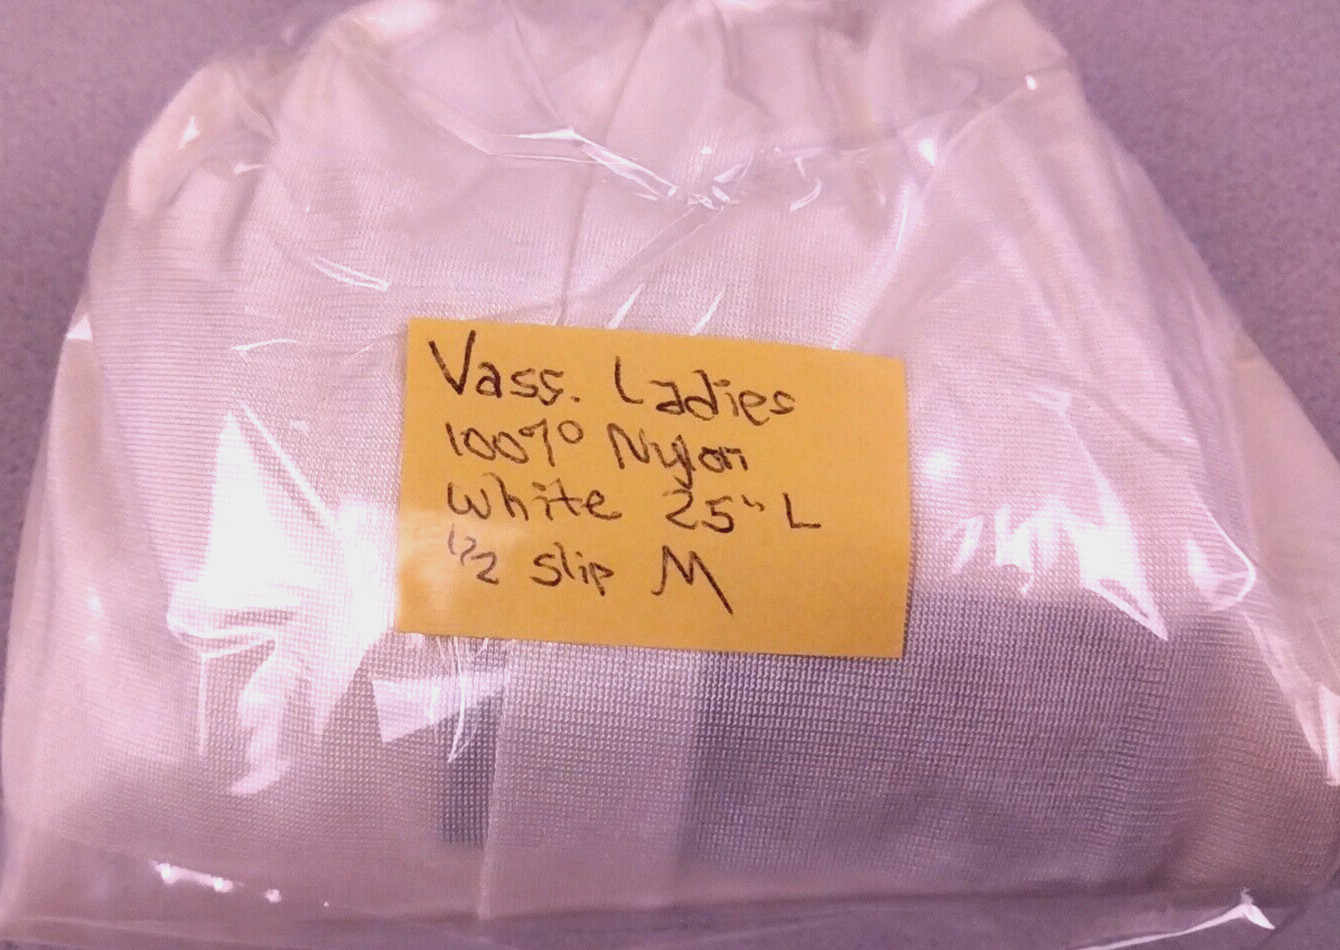 Vass. Ladies
100% Nylon
White 25" L
1/2 slip M